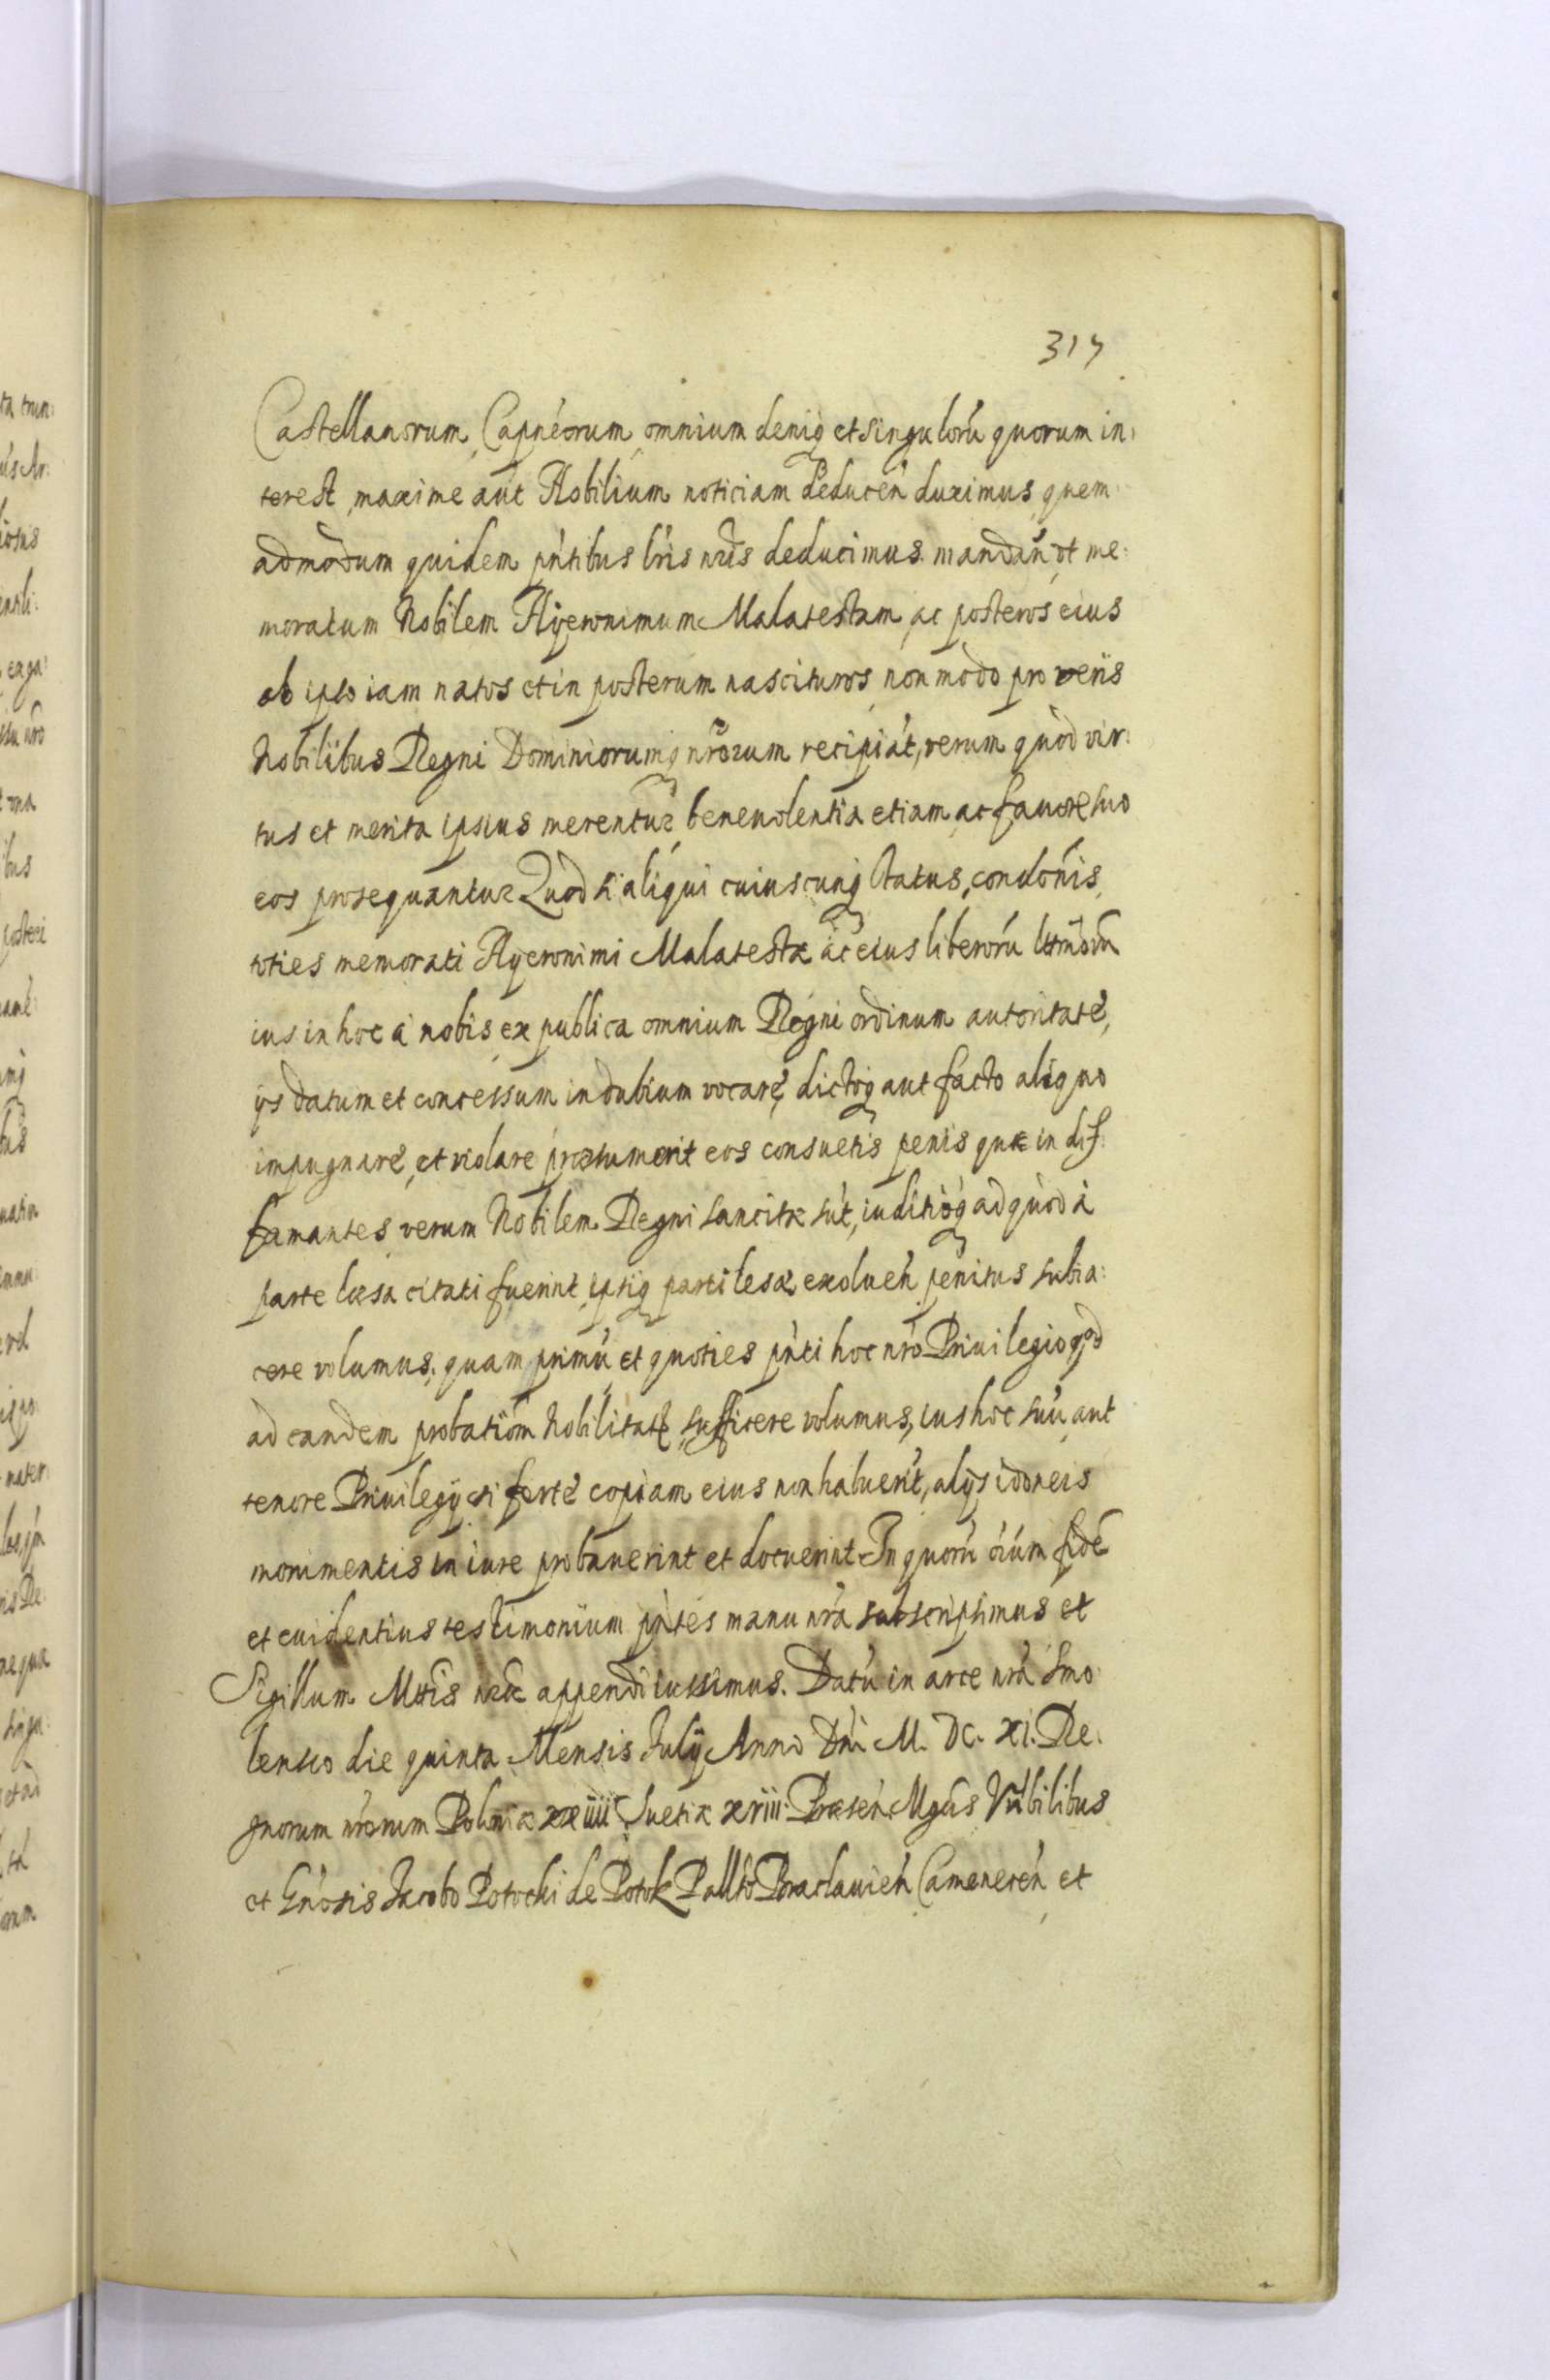 317
Castellanorum, Capneorum, omnium deniq et singuloru quorum in:
terest, maxime aut Nobilium noticiam deducen duximus, quem
admodum quidem pntibus lris nris deducimus. mandan, ut me:
moratum Nobilem Hyeronimum Malatestam, ac posteros eius
ab ipso iam natos et in posterum nascituros, non modo pro veris
Nobilibus Regni Dominiorumq nrorum recipiat, verum quod vir:
tus et merita ipsius merentur, benevolentia etiam, ac favore suo
eos prosequantur Quod si aliqui cuiuscunq status, condonis,
toties memorati Hyeronimi Malatestæ ac eius liberoru
ius in hoc à nobis, ex publica omnium Regni ordinum autoritate,
ijs datum et concessum in dubium vocare, dictoq aut facto aliquo
impugnare, et violare præsumerit eos consuetis penis quæ in dif:
famantes, verum Nobilem Regni sancitæ sut, iuditioq ad quod à
parte læsa citati fuerint, ipsiq parti lesæ exoluen penitus subia:
cere volumus, quam primu, et quoties pnti hoc nro Privilegio, qod
ad eandem probatiom Nobilitatis sufficere volumus, ius hoc suu, aut
tenore Privilegij, si forte copiam eius non habuerit, alijs idoneis
monimentis in iure probaverint et docuerint. In quoru oium fide
et evidentius testimonium pntes manu nra subscripsimus et
Sigillum Mttis nræ appendi iussimus. Datu in arce nra Smo:
lensco die quinta Mensis Julij Anno Dni M. DC. XI. Re:
gnorum nrorum Poloniæ xxiiii Suetiæ xviii. Præsen Mgcis Vnbilibus
et Gnosis Jacobo Potocki de Potok Pallto Braclavien Cameneren et